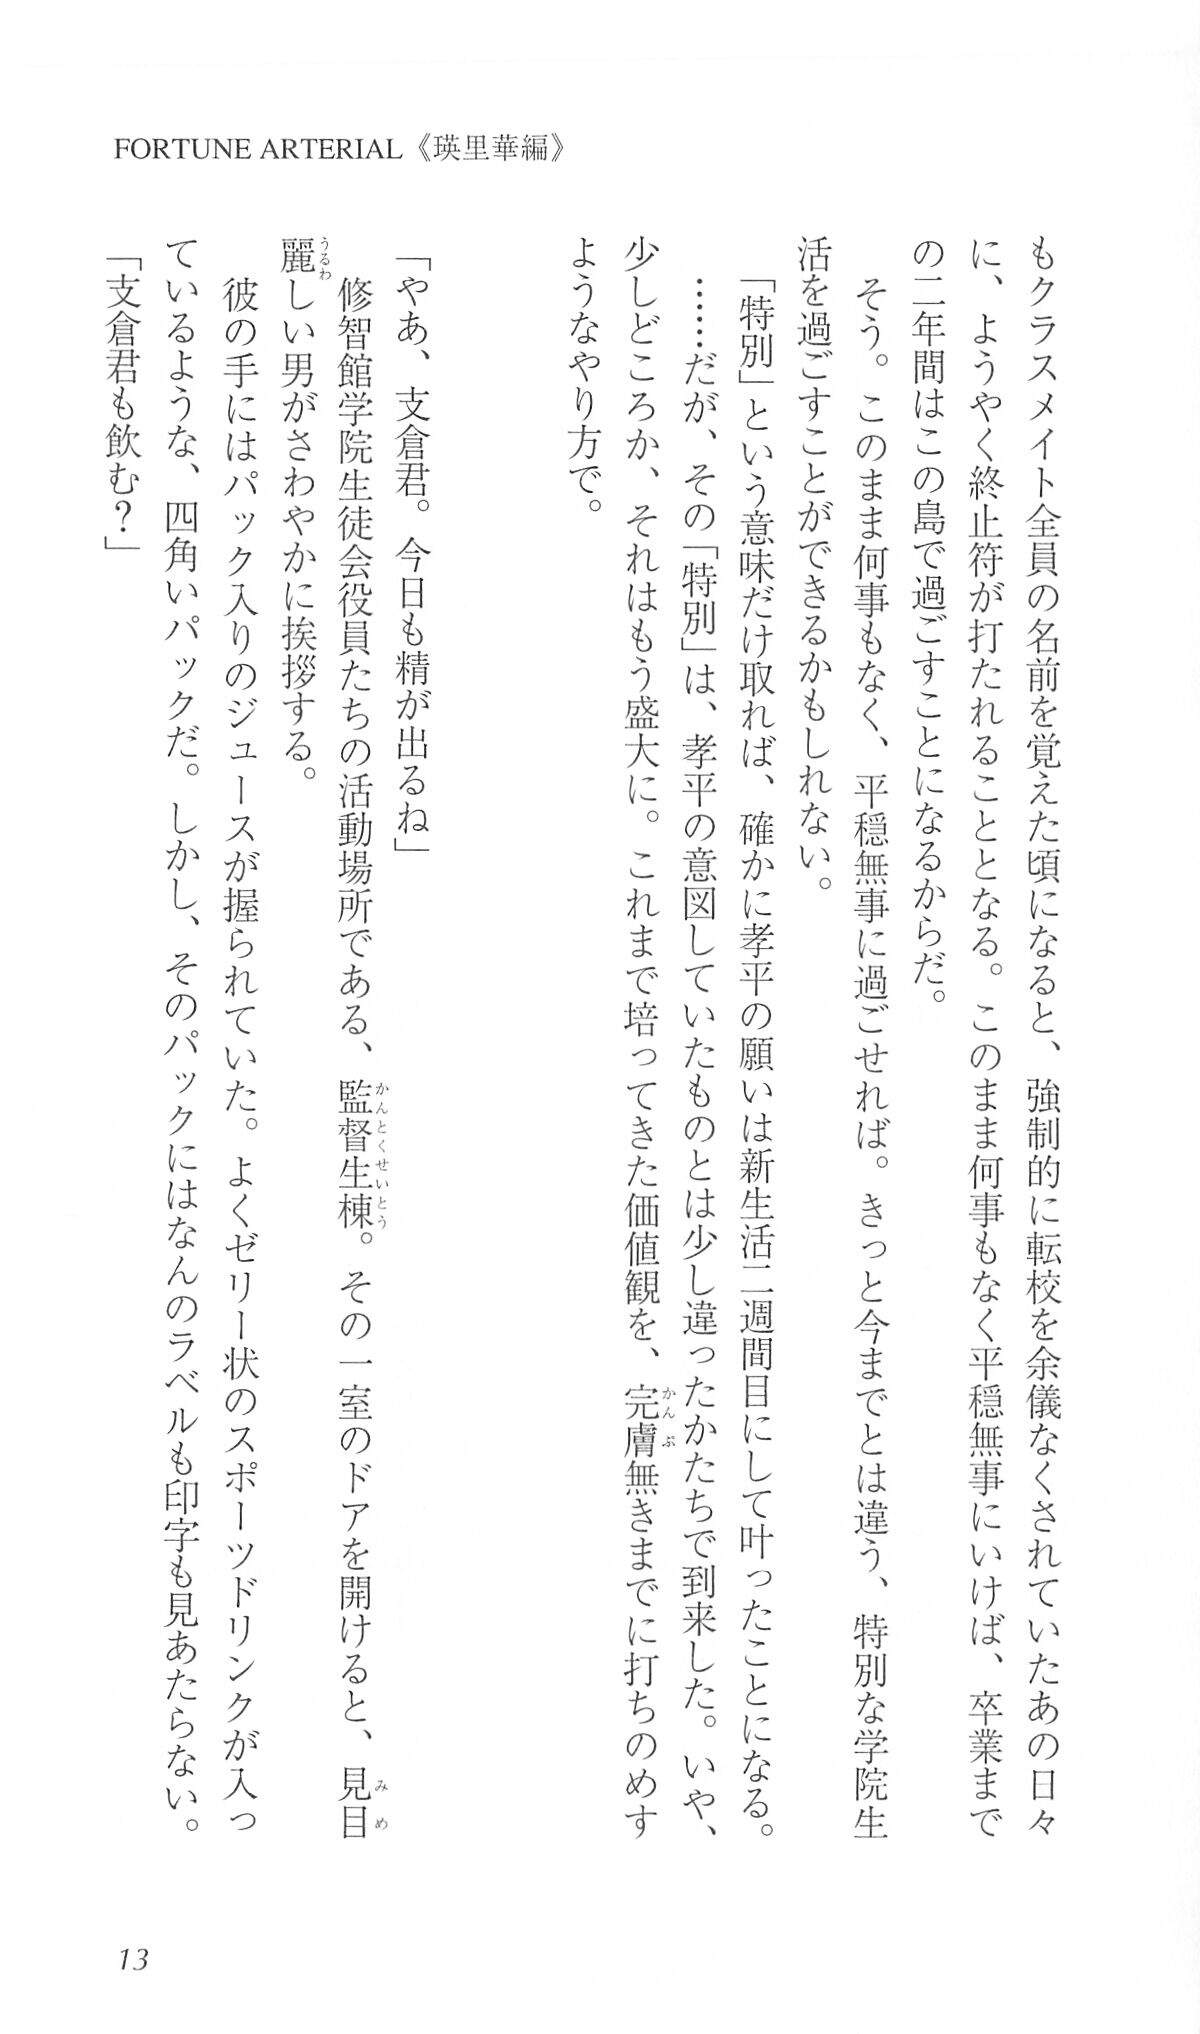 FORTUNE ARTERIAL《瑛里華編》
もクラスメイト全員の名前を覚えた頃になると、強制的に転校を余儀なくされていたあの日々
に、ようやく終止符が打たれることとなる。このまま何事もなく平穏無事にいけば、卒業まで
の二年間はこの島で過ごすことになるからだ。
　そう。このまま何事もなく、平穏無事に過ごせれば。きっと今までとは違う、特別な学院生
活を過ごすことができるかもしれない。
　「特別」という意味だけ取れば、確かに孝平の願いは新生活二週間目にして叶ったことになる。
　……だが、その「特別」は、孝平の意図していたものとは少し違ったかたちで到来した。いや、
少しどころか、それはもう盛大に。これまで培ってきた価値観を、完膚無きまでに打ちのめす
かんぷ
ようなやり方で。
「やあ、支倉君。今日も精が出るね」
　修智館学院生徒会役員たちの活動場所である、監督生棟。その一室のドアを開けると、見目
かんとくせいとう
みめ
麗しい男がさわやかに挨拶する。
うるわ
　彼の手にはパック入りのジュースが握られていた。よくゼリー状のスポーツドリンクが入っ
ているような、四角いパックだ。しかし、そのパックにはなんのラベルも印字も見あたらない。
「支倉君も飲む？」
13